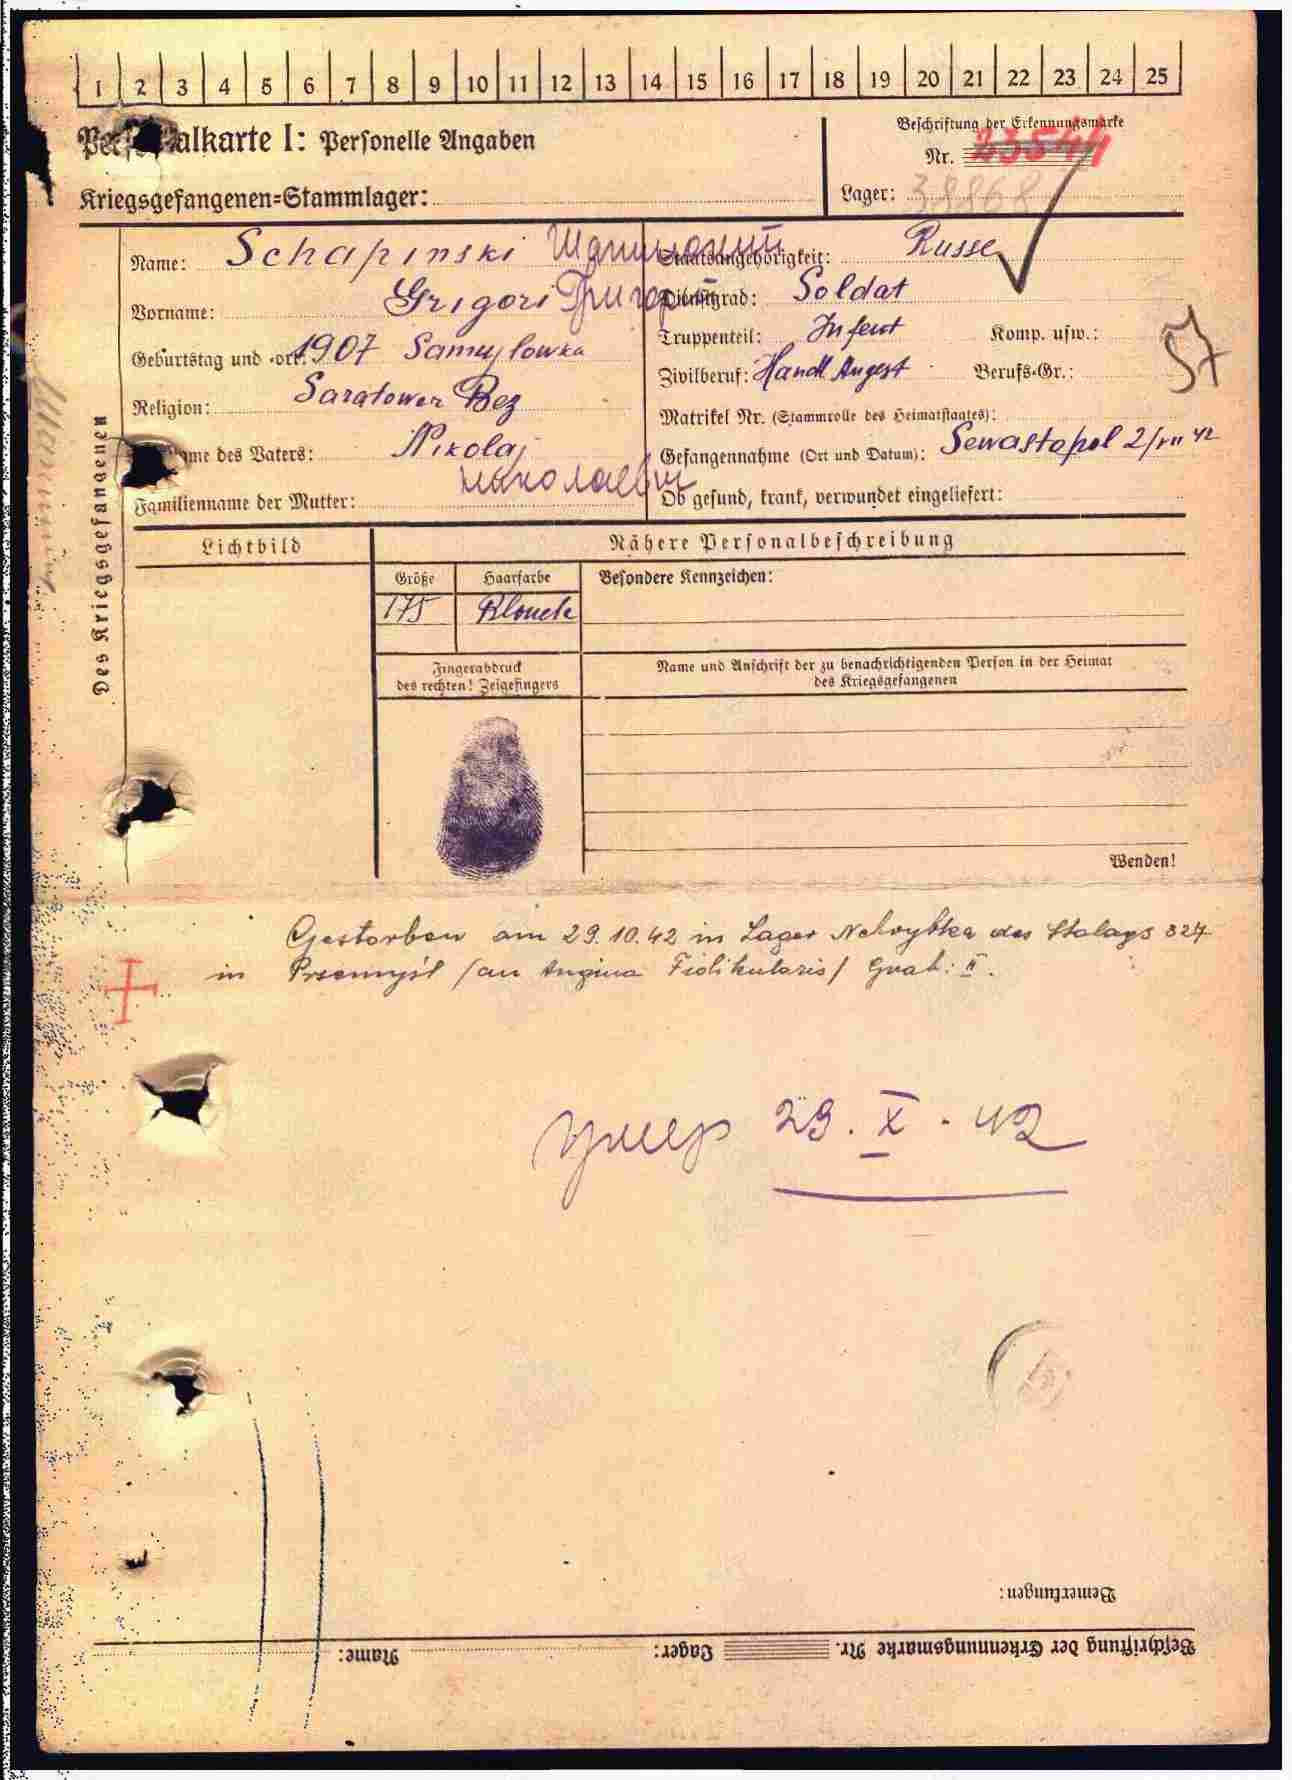 1 2 3 4 5 6 7 8 9 10 11 12 13 14 15 16 17 18 19 20 21 22 23 24 25
Personalkarte I: Personelle Angaben
Kriegsgefangenen=Stammlager:
Beschriftung der Erkennungsmarke
Nr. 23544
Lager: 38868
Des Kriegsgefangenen
Name: Schapinski
Vorname: Grigori Григорий
Geburtstag und -ort: 1907 Samuylowka
Religion: Saratower Bez
Vorname des Vaters: Nikolaj
Николаевич
Familienname der Mutter:
Staatsangehörigkeit: Russe
Dienstgrad: Soldat
Truppenteil: Infent Komp. usw.:
Zivilberuf: Handl Angest Berufs-Gr.: 57
Matrikel Nr. (Stammrolle des Heimatstaates):
Gefangennahme (Ort und Datum): Sewastopol 2/VII 42
Ob gesund, krank, verwundet eingeliefert:
Lichtbild
Nähere Personalbeschreibung
Größe Haarfarbe Besondere Kennzeichen:
175 Blond
Fingerabdruck
des rechten! Zeigefingers
Name und Anschrift der zu benachrichtigenden Person in der Heimat
des Kriegsgefangenen
Wenden!
Gestorben am 29.10.42 in Lager Nehrybka des Stalags 327
in Przemyśl /an Angina Fiolikularis/ Grab: II.
умер 29. X. 42
Bemerkungen:
Beschriftung der Erkennungsmarke Nr. Lager: Name: